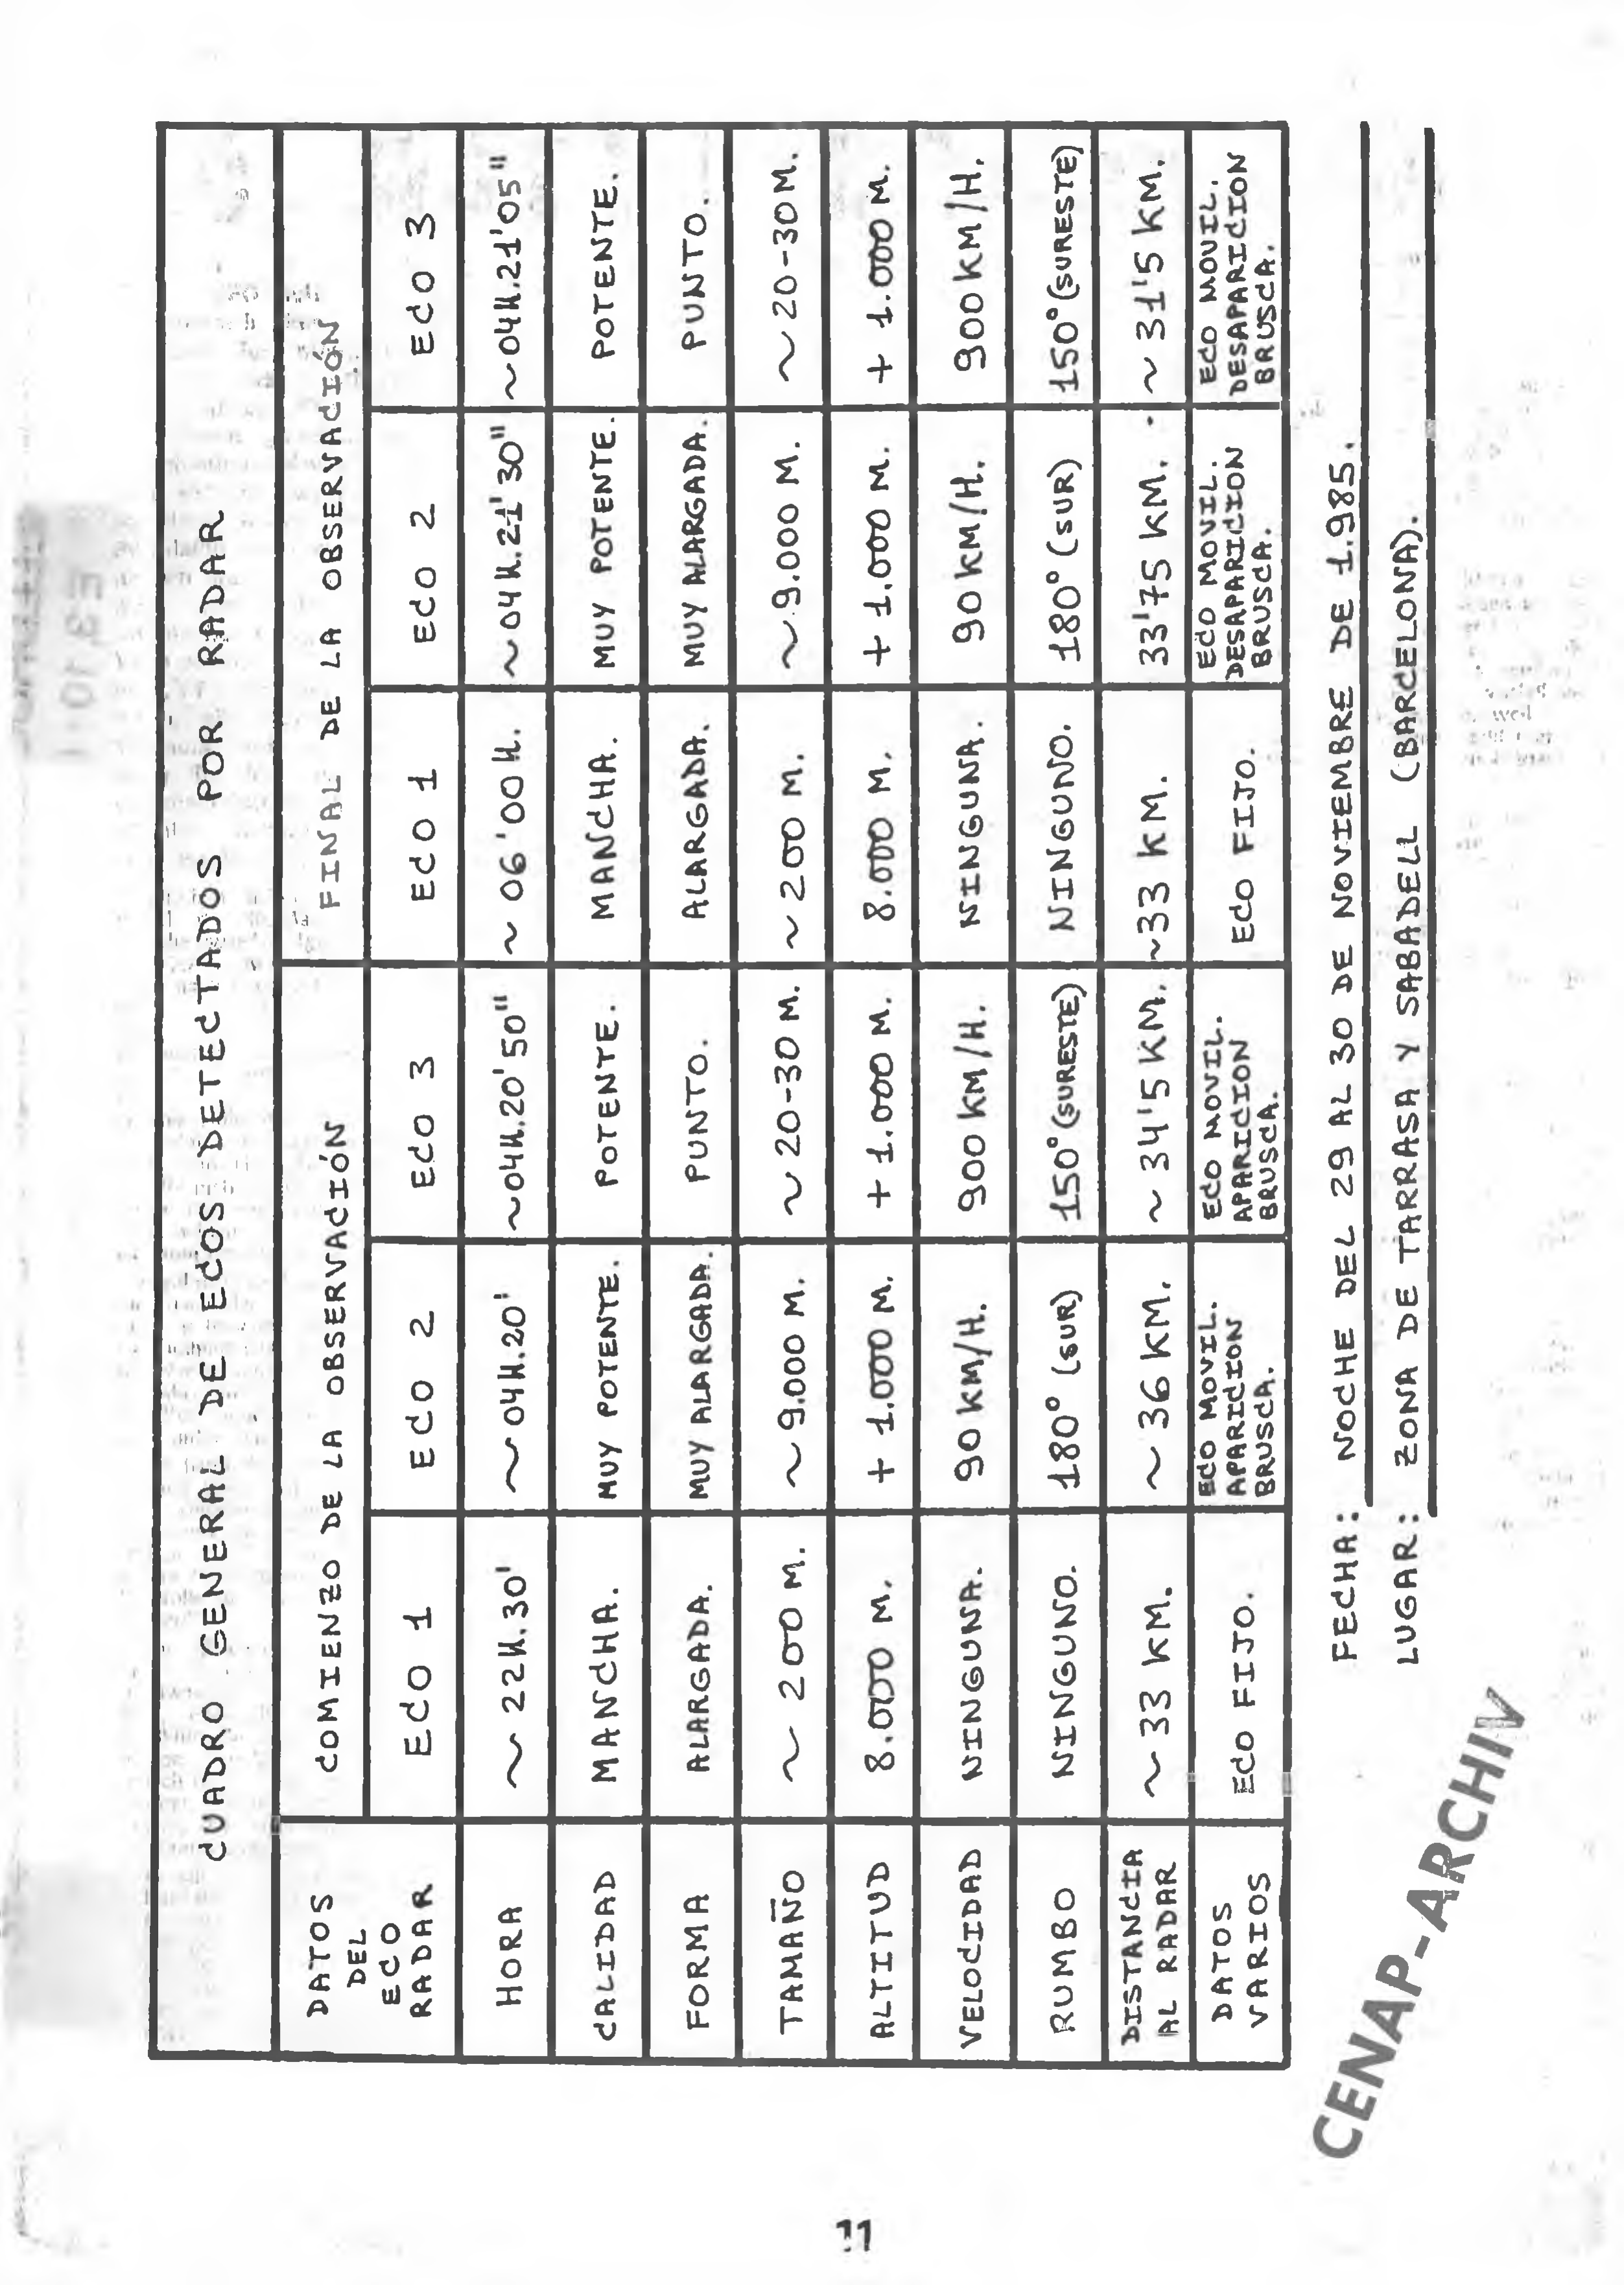 CUADRO GENERAL DE ECOS DETECTADOS POR RADAR
DATOS DEL ECO RADAR
COMIENZO DE LA OBSERVACIÓN
FINAL DE LA OBSERVACIÓN
ECO 1 ECO 2 ECO 3 ECO 1 ECO 2 ECO 3
HORA ~ 22H.30' ~04H.20' ~04H.20'50" ~ 06'00H. ~04H.21'30" ~04H.21'05"
CALIDAD MANCHA. MUY POTENTE. POTENTE. MANCHA. MUY POTENTE. POTENTE.
FORMA ALARGADA. MUY ALARGADA. PUNTO. ALARGADA. MUY ALARGADA. PUNTO.
TAMAÑO ~ 200 M. ~9.000 M. ~20-30 M. ~200 M. ~9.000 M. ~20-30M.
ALTITUD 8.000 M. + 1.000 M. + 1.000 M. 8.000 M. + 1.000 M. + 1.000 M.
VELOCIDAD NINGUNA. 90 KM/H. 900 KM/H. NINGUNA. 90 KM/H. 900KM/H.
RUMBO NINGUNO. 180° (SUR) 150° (SURESTE) NINGUNO. 180° (SUR) 150° (SURESTE)
DISTANCIA AL RADAR ~33 KM. ~36 KM. ~34'5 KM. ~33 KM. 33'75 KM. ~31'5 KM.
DATOS VARIOS ECO FIJO. ECO MOVIL. APARICION BRUSCA. ECO MOVIL. APARICION BRUSCA. ECO FIJO. ECO MOVIL. DESAPARICION BRUSCA. ECO MOVIL. DESAPARICION BRUSCA.
FECHA: NOCHE DEL 29 AL 30 DE NOVIEMBRE DE 1.985.
LUGAR: ZONA DE TARRASA Y SABADELL (BARCELONA).
CENAP-ARCHIV
11